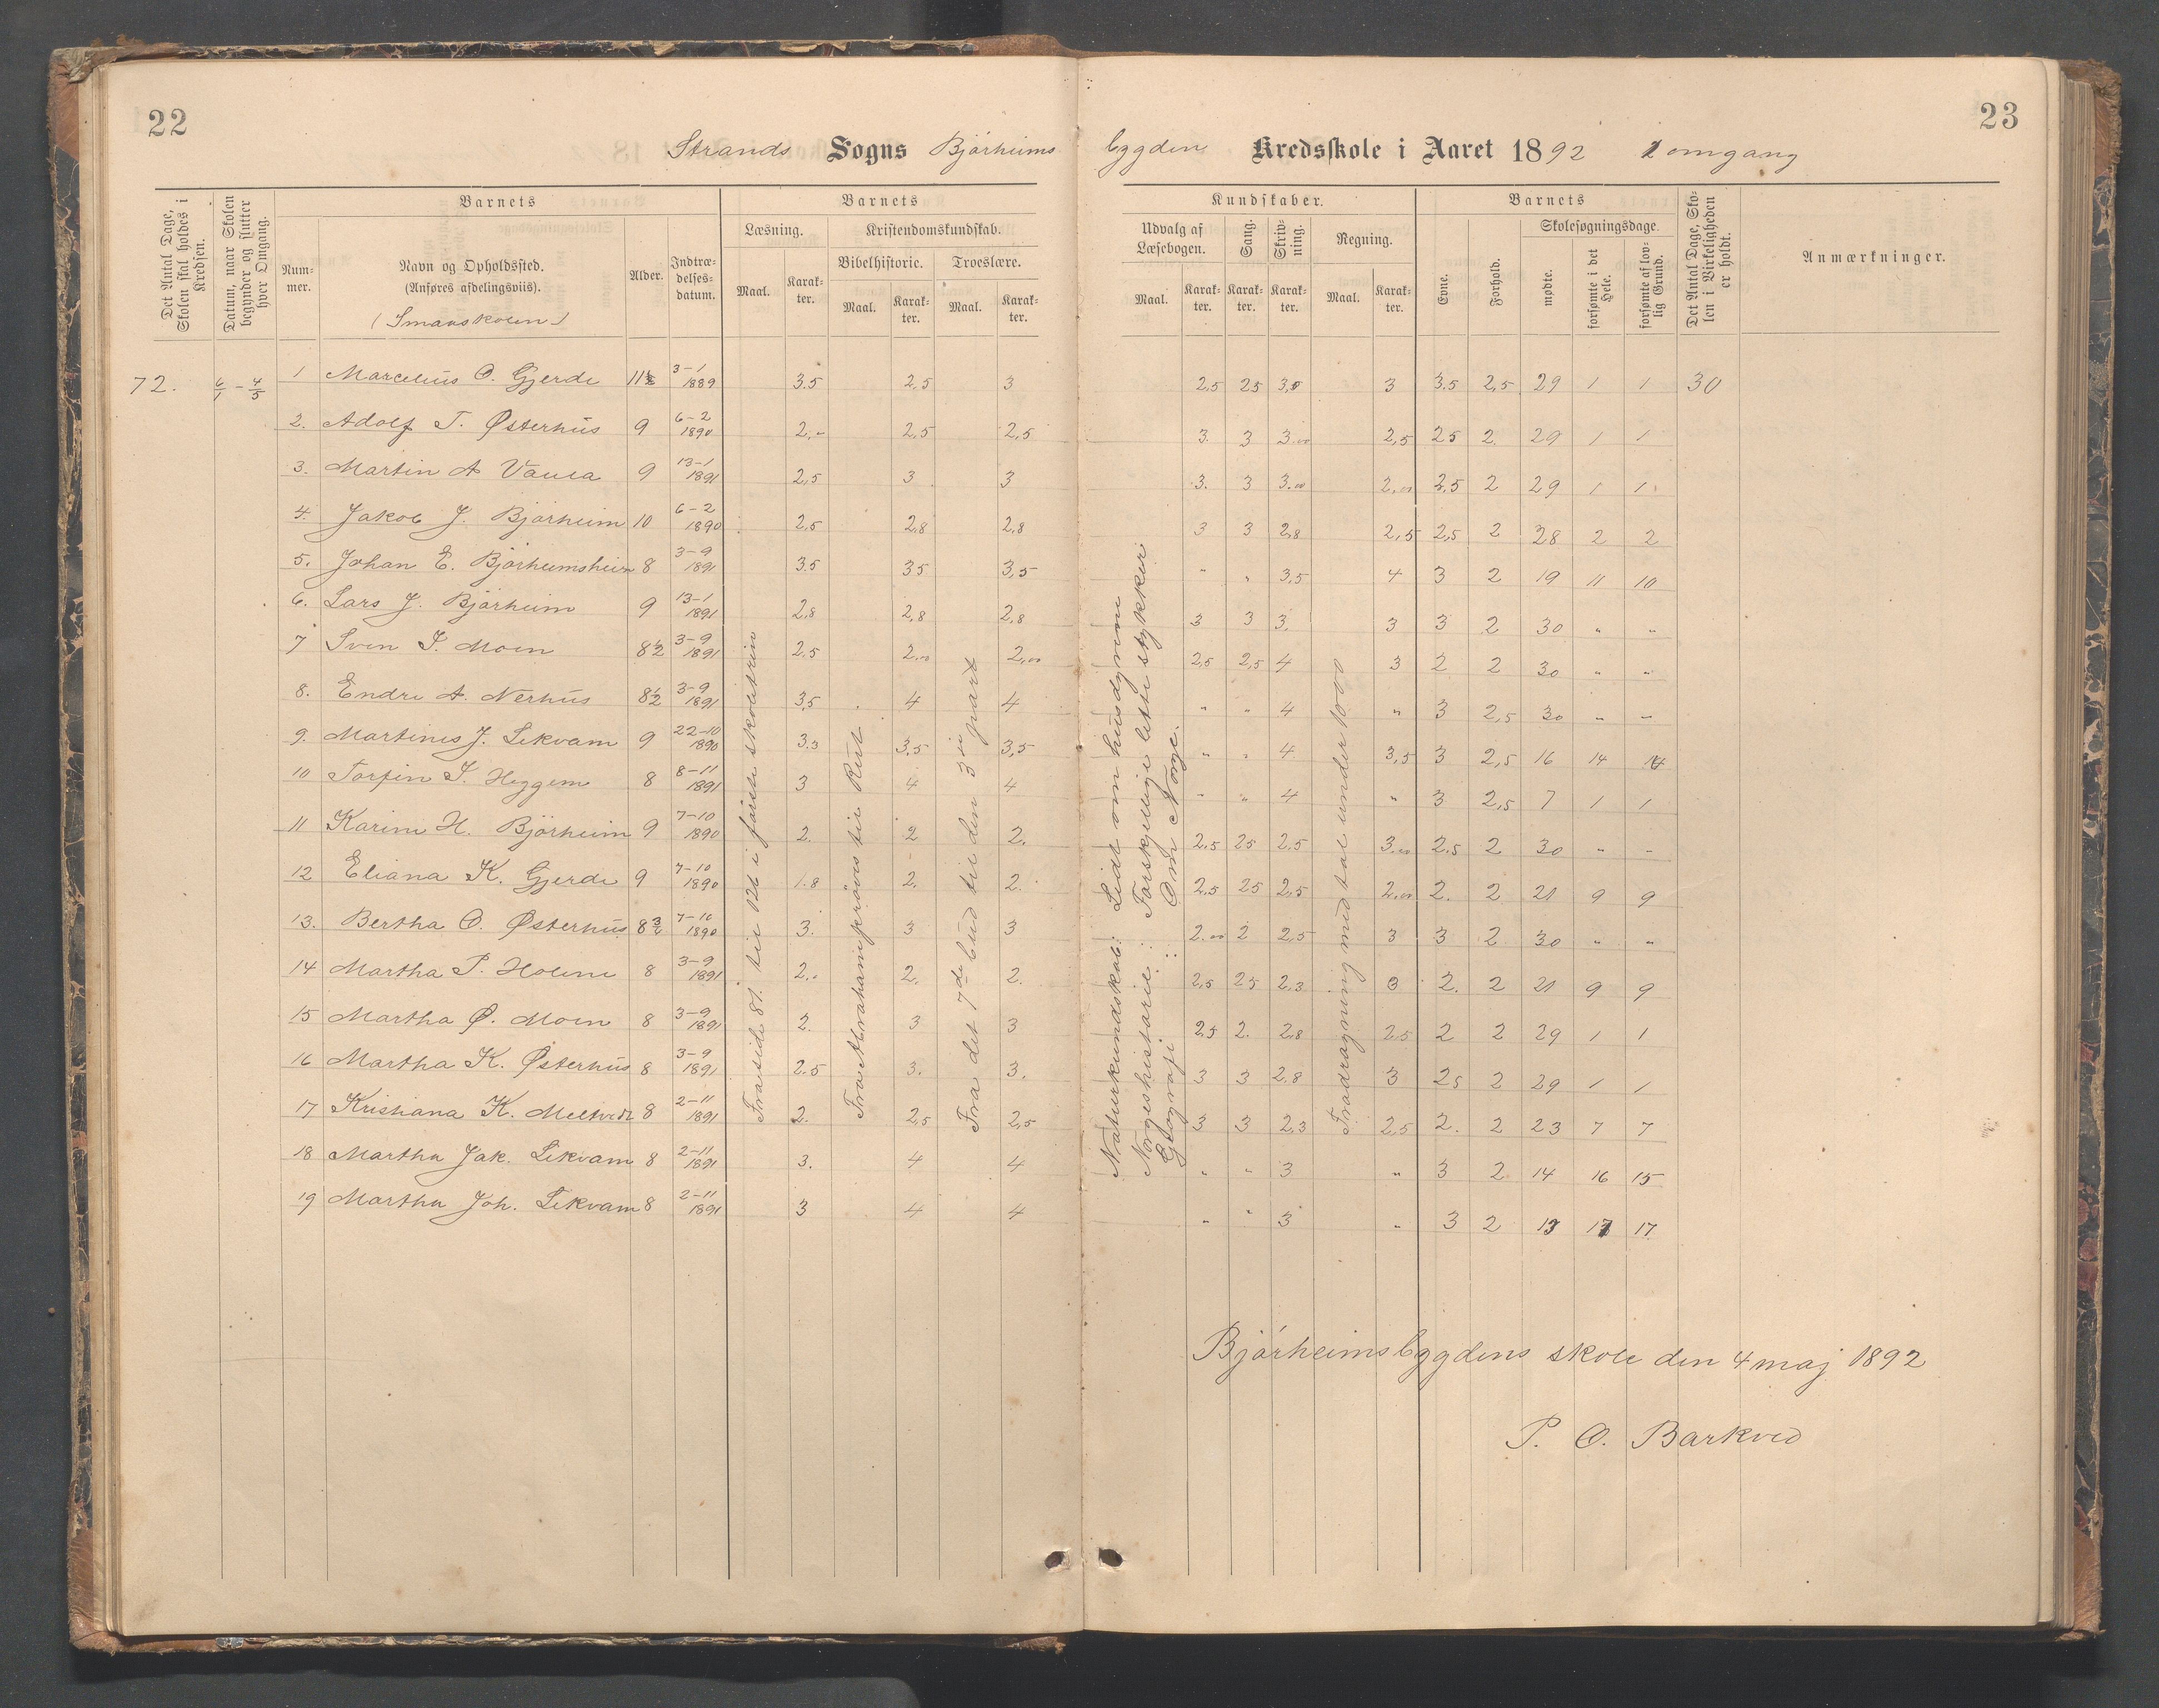 22
23
Strands Sogns Bjørheims bygdens Kredsskole i Aaret 1892 1 omgang
Det Antal Dage, Skolen skal holdes i Kredsen.
Datum, naar Skolen begynder og slutter hver Omgang.
Barnets
Barnets
Kundskaber.
Barnets
Det Antal Dage, Skolen i Virkeligheden er holdt.
Anmærkninger.
Nummer.
Navn og Opholdssted.
(Anføres afdelingsviis).
(Smaaskolen)
Alder.
Indtrædelsesdatum.
Læsning.
Kristendomskundskab.
Bibelhistorie.
Troeslære.
Maal. Karakter. Maal. Karakter. Maal. Karakter.
Udvalg af Læsebogen.
Sang.
Skrivning.
Regning.
Maal. Karakter. Karakter. Karakter. Maal. Karakter.
Evne.
Forhold.
Skolesøgningsdage.
mødte.
forsømte i det Hele.
forsømte af lovlig Grund.
72. 6/1 – 4/5 1 Marcelius O. Gjerde 11½ 3-1 1889 3.5 2,5 3 2,5 25 3,0 3 3.5 2,5 29 1 1 30
2. Adolf T. Østerhus 9 6-2 1890 2,- 2,5 2,5 3. 3 3.00 2,5 25 2. 29 1 1
3. Martin A Vaula 9 13-1 1891 2,5 3 3 3. 3 3.00 2,00 2,5 2 29 1 1
4. Jakob J. Bjørheim 10 6-2 1890 2,5 2,8 2,8 3 3 2,8 2,5 2,5 2 28 2 2
5. Johan E. Bjørheimsheim 8 3-9 1891 3.5 35 3,5 " " 3,5 4 3 2 19 11 10
6. Lars J. Bjørheim 9 13-1 1891 2,8 2,8 2,8 3 3 3. 3 3 2 30 " "
7 Sven S. Moen 8½ 3-9 1891 2.5 2,00 2,00 2,5 2,5 4 3 2 2 30 " "
8. Endre A. Nerhus 8½ 3-9 1891 3,5 4 4 " " 4 " 3 2,5 30 " "
9. Martines J. Lekvam 9 22-10 1890 3.3 3,5 3,5 " " 4 3,5 3 2,5 16 14 14
10 Torfin S. Heggem 8 8-11 1891 3 4 4 " " 4 " 3 2,5 7 1 1
11 Karine H. Bjørheim 9 7-10 1890 2. 2 2. 2.5 25 2.5 3.00 2.5 2 30 " "
12 Eliana K. Gjerde 9 7-10 1890 1.8 2. 2. 2,5 25 2,5 2.00 2. 2 21 9 9
13. Bertha O. Østerhus 8¾ 7-10 1890 3. 3 3 2.00 2 2,5 3 3 2 30 " "
14 Martha P. Holene 8 3-9 1891 2,. 2. 2. 2,5 25 2,3 3 2. 2 21 9 9
15 Martha Ø. Moen 8 3-9 1891 2. 3 3 2,5 2. 2,8 2.5 2 2 29 1 1
16 Martha K. Østerhus 8 3-9 1891 2.5 3. 3. 3 3 2.8 3 25 2 29 1 1
17 Kristiana K. Meltvedt 8 2-11 1891 2. 2,5 2,5 3 3 2,3 2,5 2. 2 23 7 7
18 Martha Jak. Lekvam 8 2-11 1891 3. 4 4 " " 3 " 3 2 14 16 15
19 Martha Joh. Lekvam 8 2-11 1891 3 4 4 " " 3 " 3 2 13 17 17
Fra side 81. til 126 i første skoletrin
Fra Abrahamsprøves til Rut
Fra det 7de bud til den 3die part
Naturkundskab: Lidt om husdyrene
Norgeshistorie: Forskjellige lette stykker
Geografi: Om Norge.
Fradragning med tal under 1000
Bjørheimsbygdens skole den 4 maj 1892
P. O. Barkved